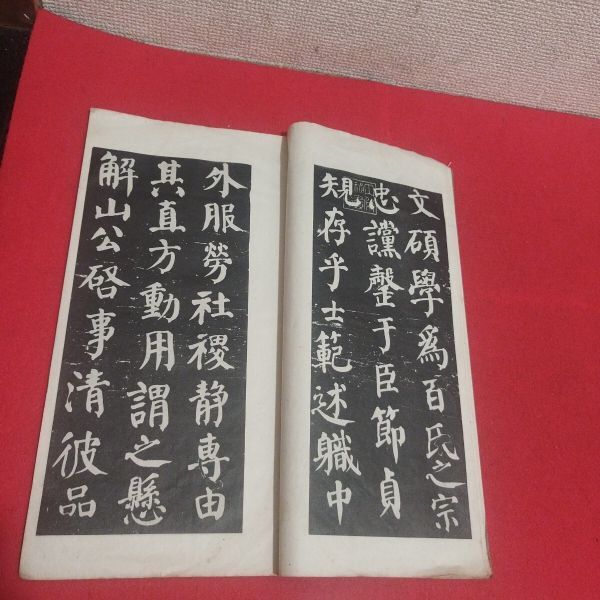 文碩學為百氏之宗
忠讜罄于臣節貞
規存乎士範述職中
外服勞社稷静專由
其直方動用謂之懸
解山公啓事清彼品